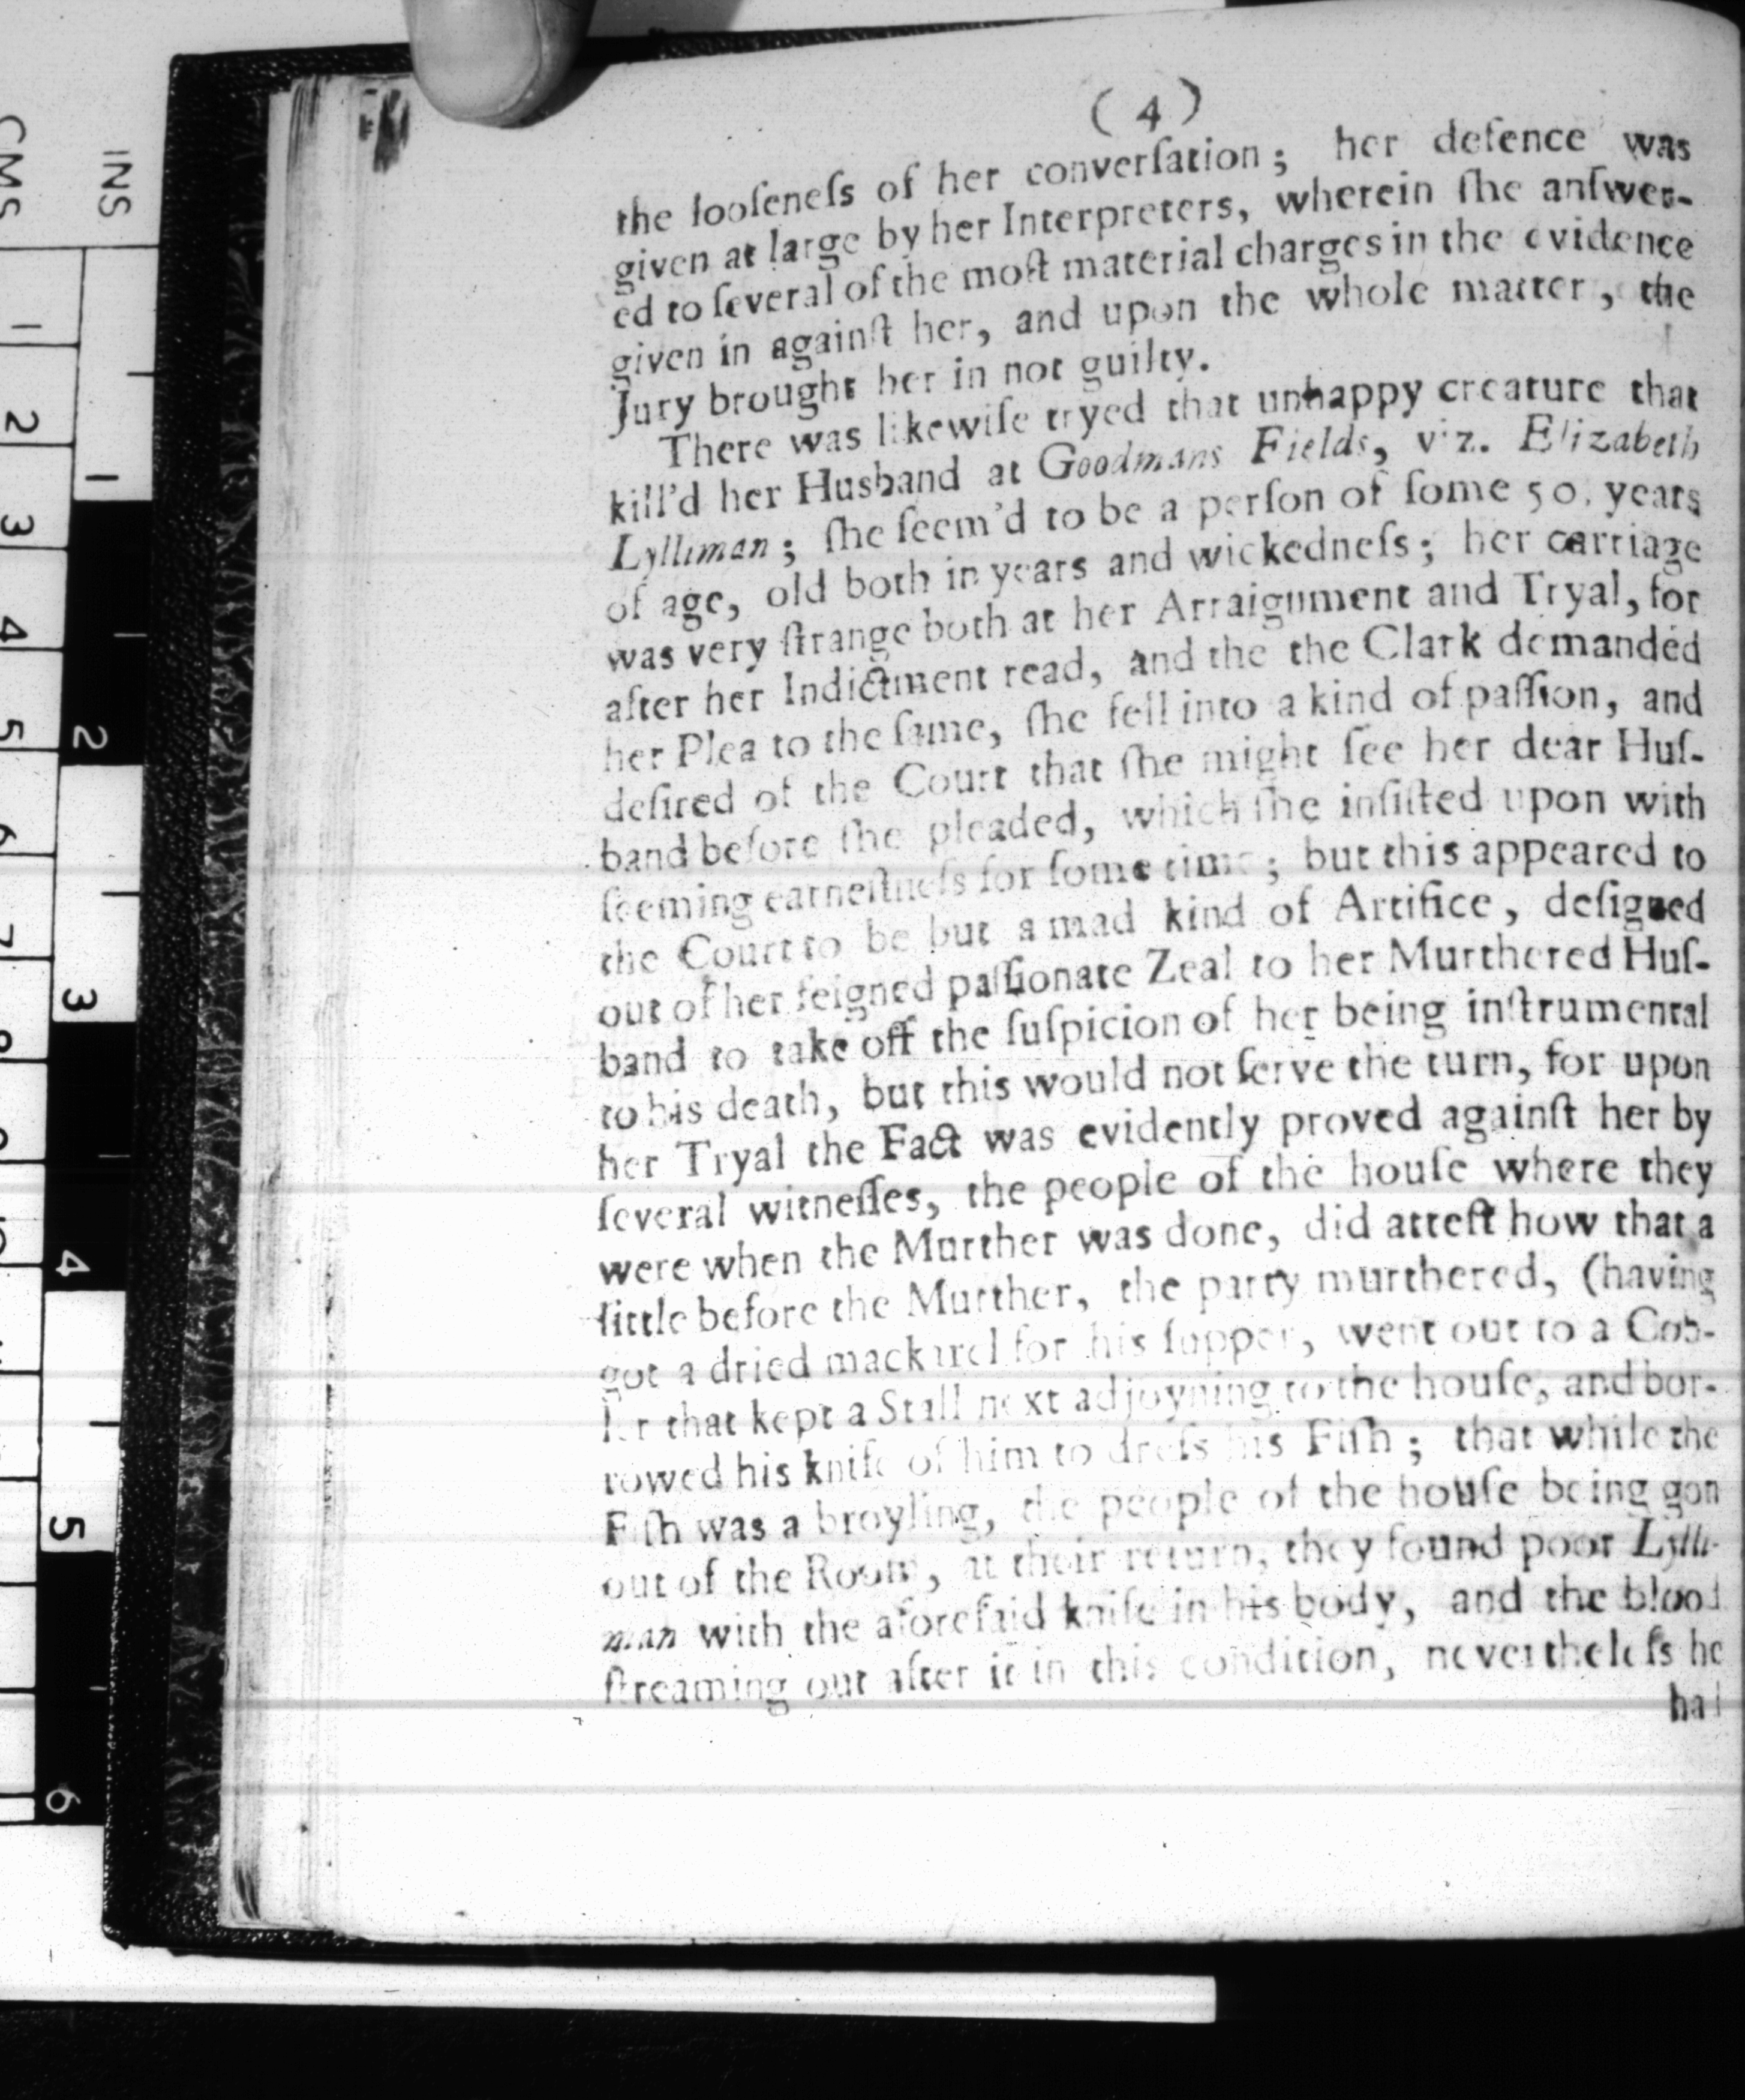 (4)
the looſeneſs of her converſation; her defence was
given at large by her Interpreters, wherein ſhe anſwer-
ed to ſeveral of the moſt material charges in the evidence
given in againſt her, and upon the whole matter, the
Jury brought her in not guilty.
There was likewiſe tryed that unhappy creature that
kill'd her Husband at Goodmans Fields, viz. Elizabeth
Lylliman; ſhe ſeem'd to be a perſon of ſome 50. years
of age, old both in years and wickedneſs; her carriage
was very ſtrange both at her Arraignment and Tryal, for
after her Indictment read, and the the Clark demanded
her Plea to the ſame, ſhe fell into a kind of paſſion, and
deſired of the Court that ſhe might ſee her dear Huſ-
band before ſhe pleaded, which ſhe inſiſted upon with
ſeeming earneſtneſs for ſome time; but this appeared to
the Court to be but a mad kind of Artifice, deſigned
out of her feigned paſſionate Zeal to her Murthered Huſ-
band to take off the ſuſpicion of her being inſtrumental
to his death, but this would not ſerve the turn, for upon
her Tryal the Fact was evidently proved againſt her by
ſeveral witneſſes, the people of the houſe where they
were when the Murther was done, did atteſt how that a
little before the Murther, the party murthered, (having
got a dried mackarel for his ſupper, went out to a Cob-
ler that kept a Stall next adjoyning to the houſe, and bor-
rowed his knife of him to dreſs his Fiſh; that while the
Fiſh was a broyling, the people of the houſe being gon
out of the Room, at their return, they found poor Lylli-
man with the aforeſaid knife in his body, and the blood
ſtreaming out after it in this condition, nevertheleſs he
had
INS
CMS
1
2
3
4
5
6
7
8
9
10
1
2
3
4
5
6